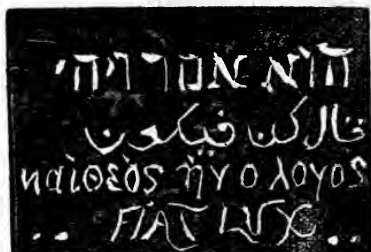 הוא אמר ויהי
قال كن فيكون
καὶ θεὸς ἠν ο λογος
FIAT LUX